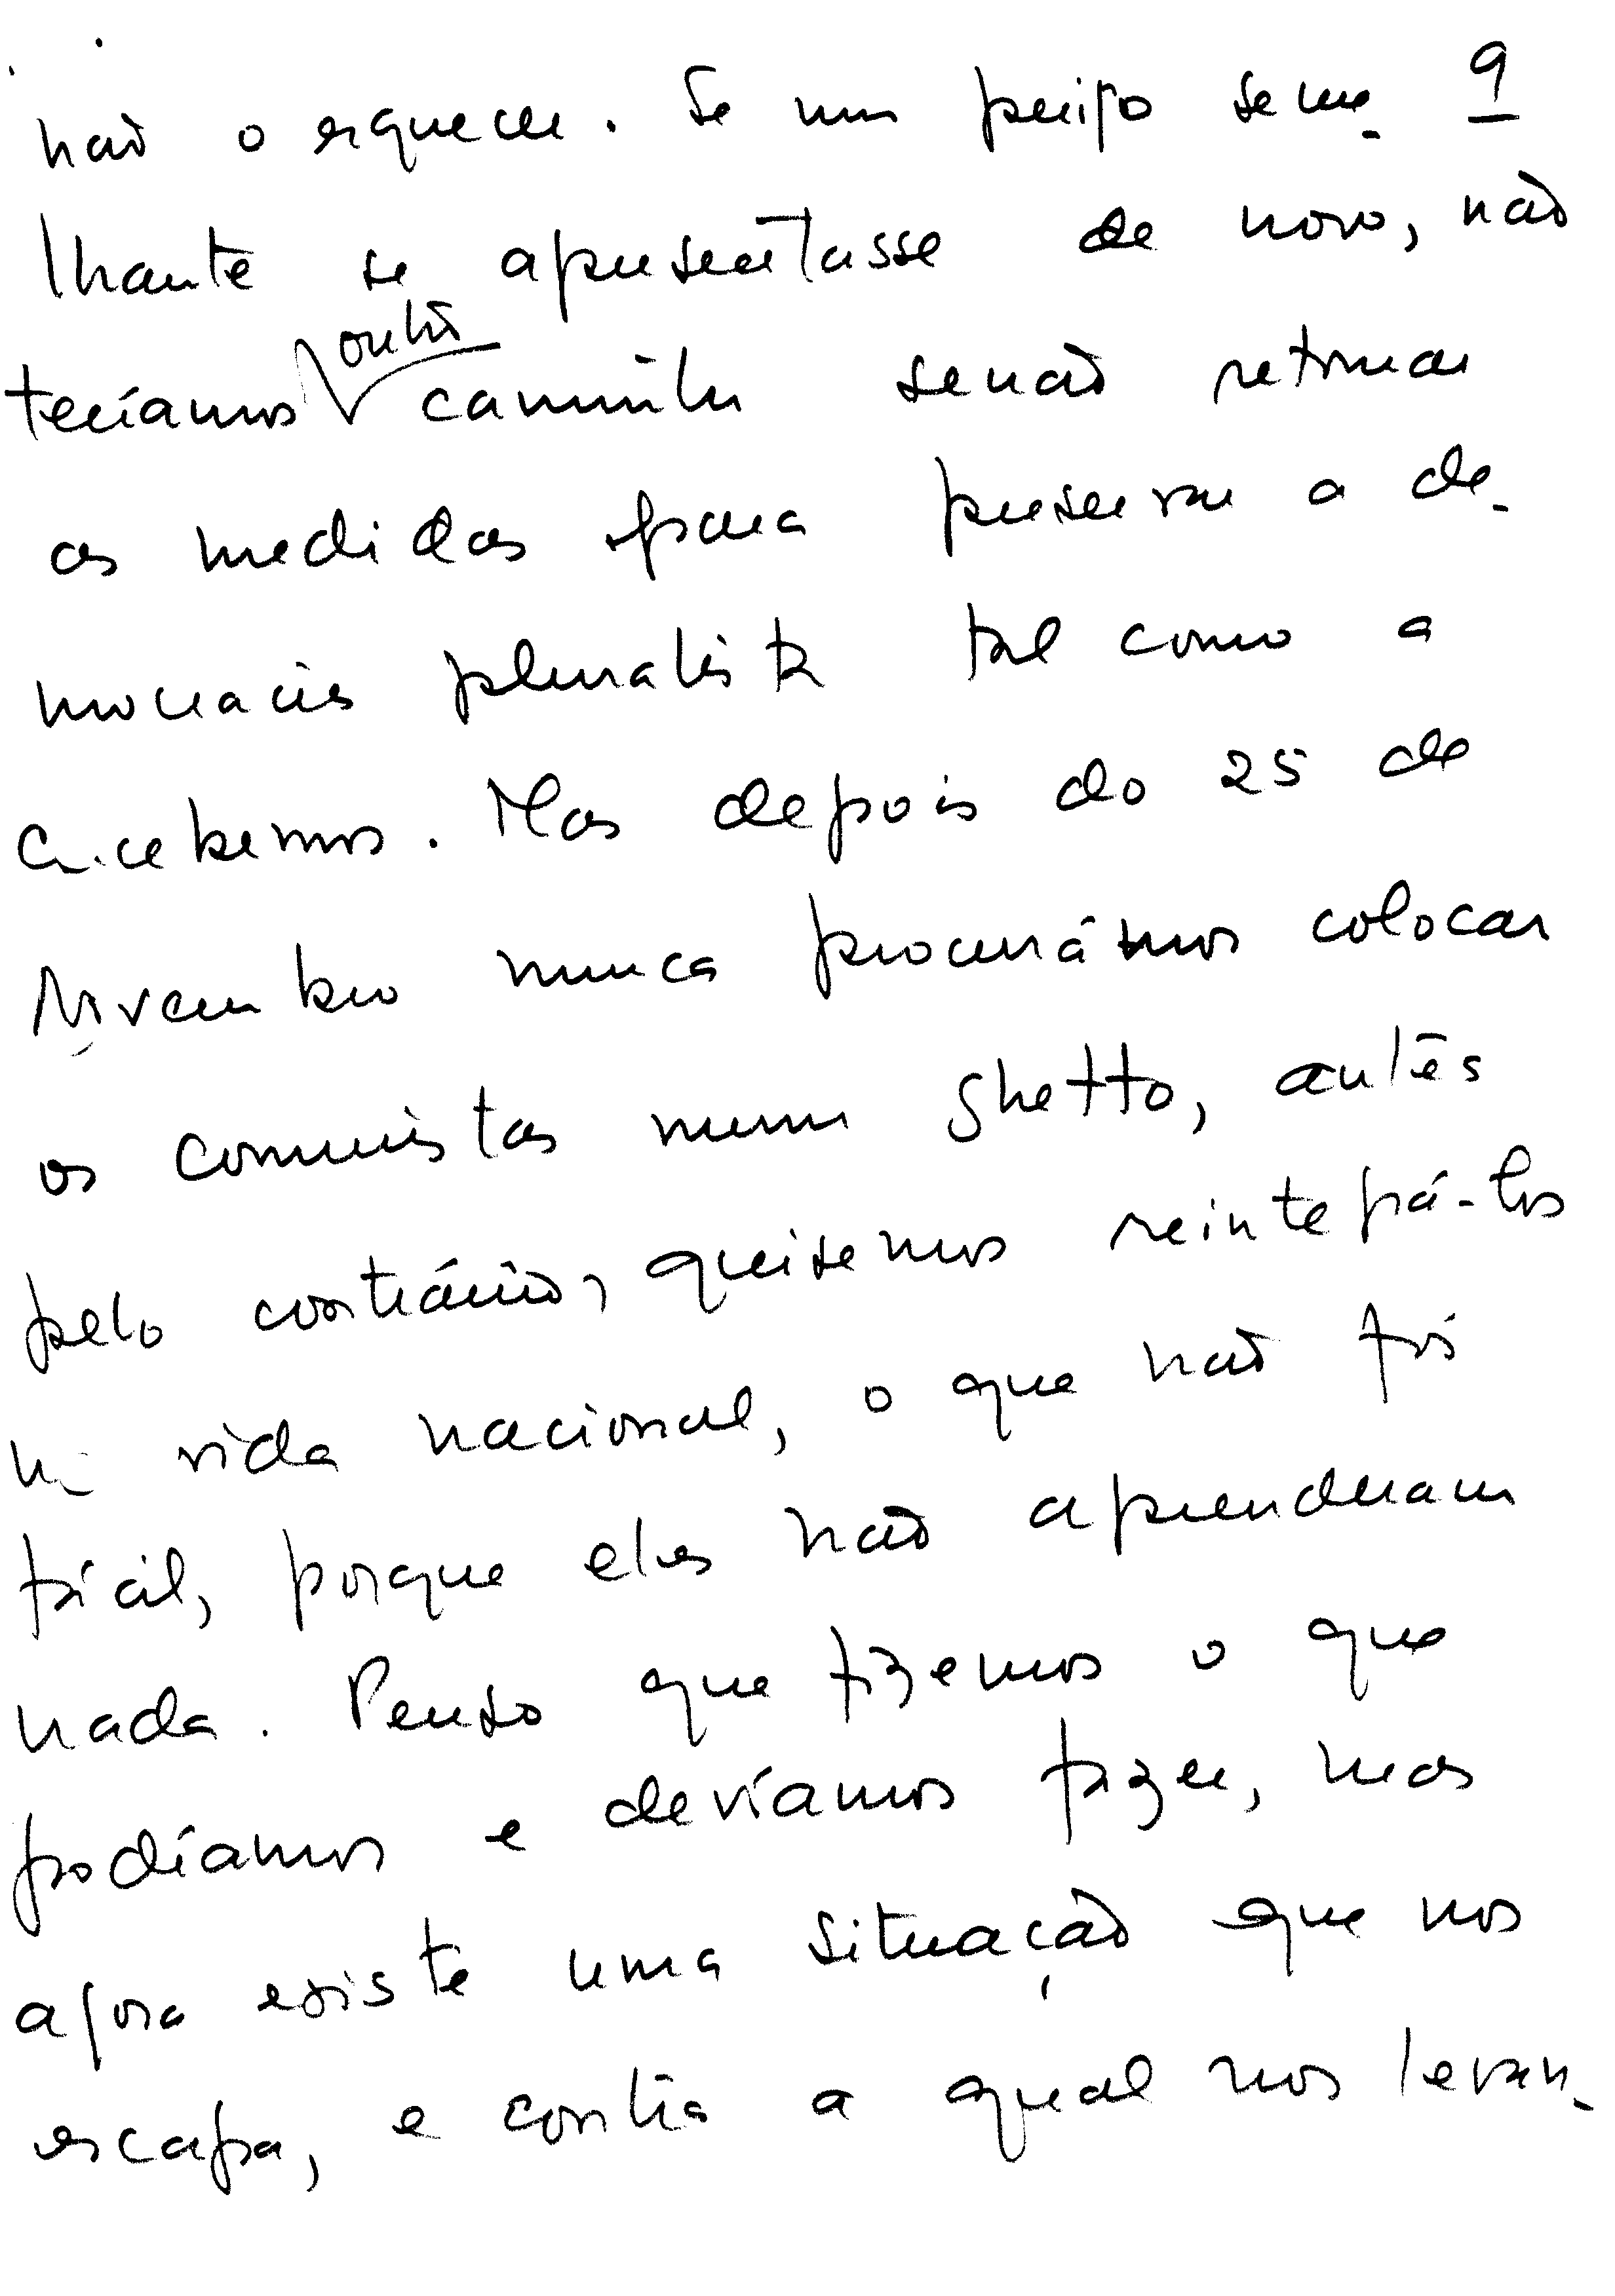 não o esquecer. Se um perigo seme- 9
lhante se apresentasse de novo, não
teríamos outro caminho senão retomar
as medidas para preservar a de-
mocracia pluralista tal como a
concebemos. Mas depois do 25 de
Novembro nunca procurámos colocar
os comunistas num ghetto, antes
pelo contrário, quisemos reintegrá-los
na vida nacional, o que não foi
fácil, porque eles não aprenderam
nada. Penso que fizemos o que
podíamos e devíamos fazer, mas
agora existe uma situação que nos
escapa, e contra a qual nos levan-